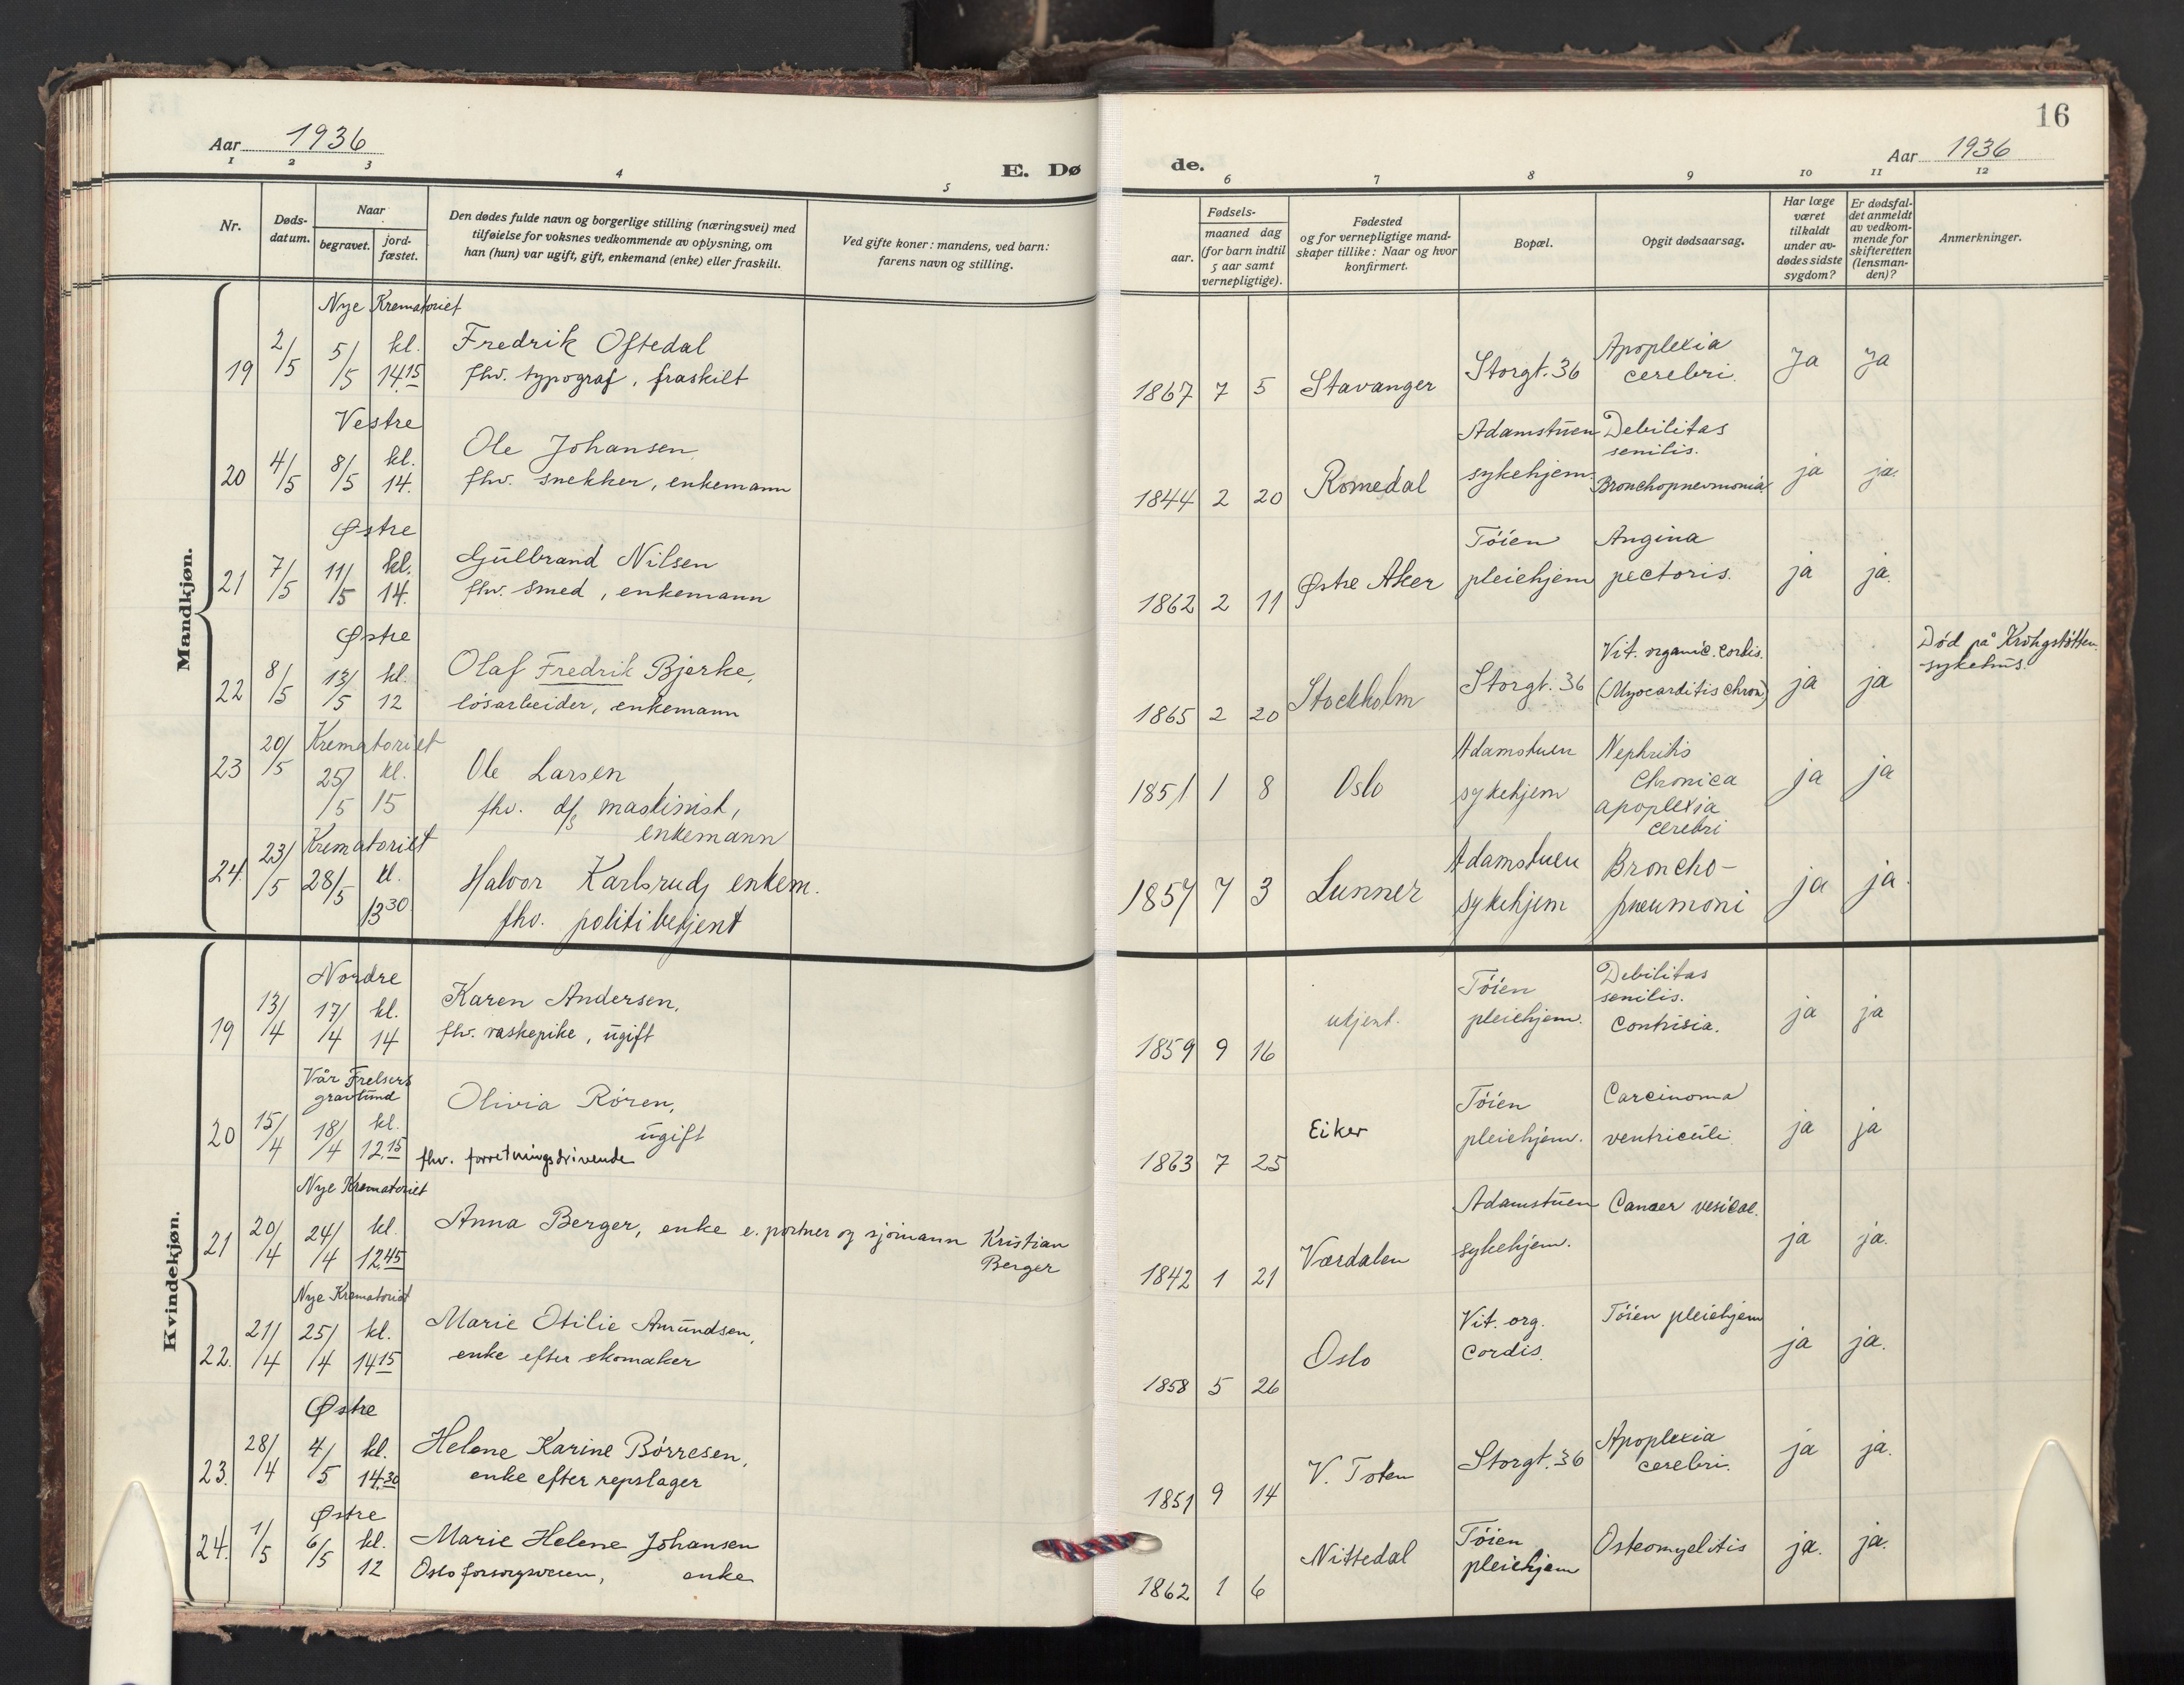 Aar 1936
E. Dø
1 2 3 4 5
Nr.
Døds-
datum.
Naar
begravet.
jord-
fæstet.
Den dødes fulde navn og borgerlige stilling (næringsvei) med
tilføielse for voksnes vedkommende av oplysning, om
han (hun) var ugift, gift, enkemand (enke) eller fraskilt.
Ved gifte koner: mandens, ved barn:
farens navn og stilling.
16
de.
Aar 1936
6 7 8 9 10 11 12
Fødsels-
aar.
maaned dag
(for barn indtil
5 aar samt
vernepligtige).
Fødested
og for vernepligtige mand-
skaper tillike: Naar og hvor
konfirmert.
Bopæl.
Opgit dødsaarsag.
Har læge
været
tilkaldt
under av-
dødes sidste
sygdom?
Er dødsfal-
det anmeldt
av vedkom-
mende for
skifteretten
(lensman-
den)?
Anmerkninger.
Mandkjøn.
Nye Krematoriet
19 2/5 5/5 kl. 14.15 Fredrik Oftedal
fhv. typograf, fraskilt
1867 7 5 Stavanger Storgt. 36 Apoplexia
cerebri. Ja Ja
Vestre
20 4/5 8/5 kl. 14. Ole Johansen
fhv. snekker, enkemann
1844 2 20 Romedal Adamstuen
sykehjem. Debilitas
senilis.
Bronchopneumonia ja ja.
Østre
21 7/5 11/5 kl. 14. Gulbrand Nilsen
fhv. smed, enkemann
1862 2 11 Østre Aker Tøien
pleiehjem Angina
pectoris. ja ja.
Østre
22 8/5 13/5 kl. 12 Olaf Fredrik Bjerke,
løsarbeider, enkemann
1865 2 20 Stockholm Storgt. 36 Vit. organic. cordis.
(Myocarditis chron) ja ja Død på Krohgstøtten
sykehus.
Krematoriet
23 20/5 25/5 kl. 15 Ole Larsen
fhv. d/s maskinist,
enkemann
1851 1 8 Oslo Adamstuen
sykehjem Nephritis
Chronica
apoplexia
cerebri ja ja
Krematoriet
24. 23/5 28/5 kl. 13.30 Halvor Karlsrud, enkem.
fhv. politibetjent
1857 7 3 Lunner Adamstuen
sykehjem Broncho-
pneumoni ja ja.
Kvindekjøn.
Nordre
19 13/4 17/4 kl. 14 Karen Andersen,
fhv. vaskepike, ugift
1859 9 16 ukjent. Tøien
pleiehjem. Debilitas
senilis.
ja ja
Vår Frelsers
gravlund
20 15/4 18/4 kl. 12.15 Olivia Røren,
ugift
fhv. forretningsdrivende
1863 7 25 Eiker Tøien
pleiehjem. Carcinoma
ventriculi. ja ja
Nye Krematoriet
21 20/4 24/4 kl. 12.45 Anna Berger, enke e. portner og sjømann Kristian
Berger
1842 1 21 Værdalen Adamstuen
sykehjem. Cancer vesicae. ja ja.
Nye Krematoriet
22. 21/4 25/4 kl. 14.15 Marie Otilie Amundsen,
enke efter skomaker
1858 5 26 Oslo Vit. org.
cordis. Tøien pleiehjem ja ja.
Østre
23. 28/4 4/5 kl. 14.30 Helene Karine Børresen,
enke efter repslager
1851 9 14 V. Toten Storgt. 36 Apoplexia
cerebri. ja ja.
Østre
24. 1/5 6/5 kl. 12 Marie Helene Johansen
Oslo forsorgsvesen, enke
1862 1 6 Nittedal Tøien
pleiehjem Osteomyelitis ja. ja.